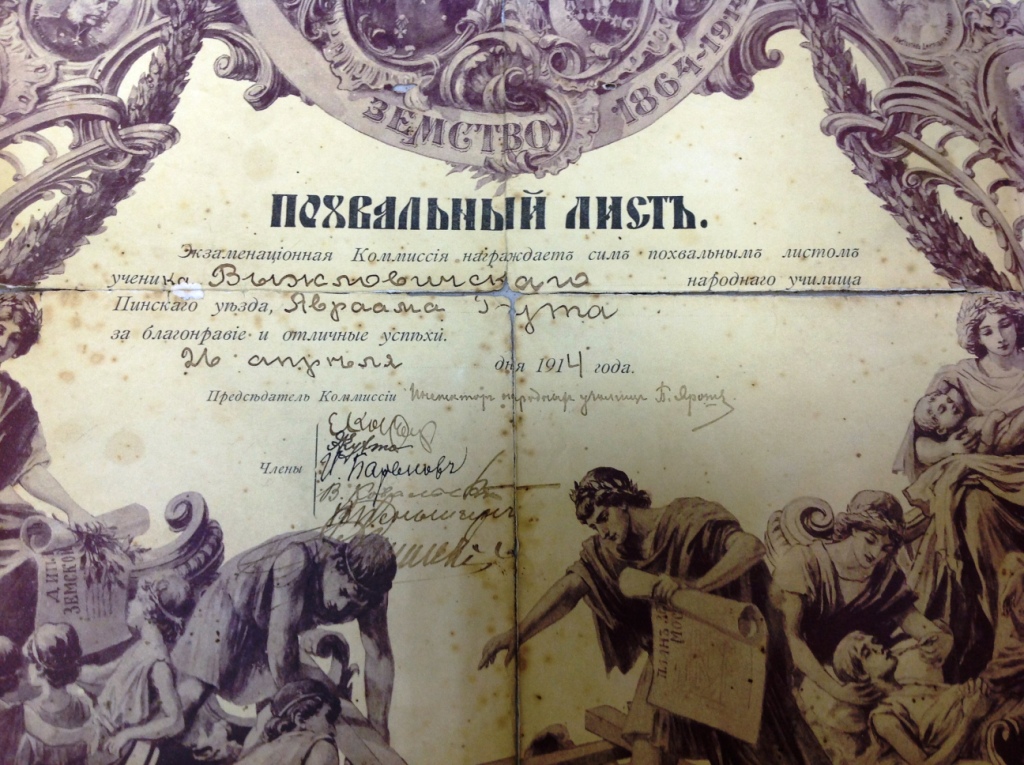 ЗЕМСТВО 1864-191
ПОХВАЛЬНЫЙ ЛИСТЪ.
Экзаменаціонная Коммиссія награждаетъ симъ похвальнымъ листомъ
ученика Выжловичскаго народнаго училища
Пинскаго уѣзда, Авраама Гута
за благонравіе и отличные успѣхи.
26 апрѣля дня 1914 года.
Предсѣдатель Коммиссіи Инспекторъ народныхъ училищъ Б.
Члены
ЗЕМСКО
ПЛАНЪ
МОС